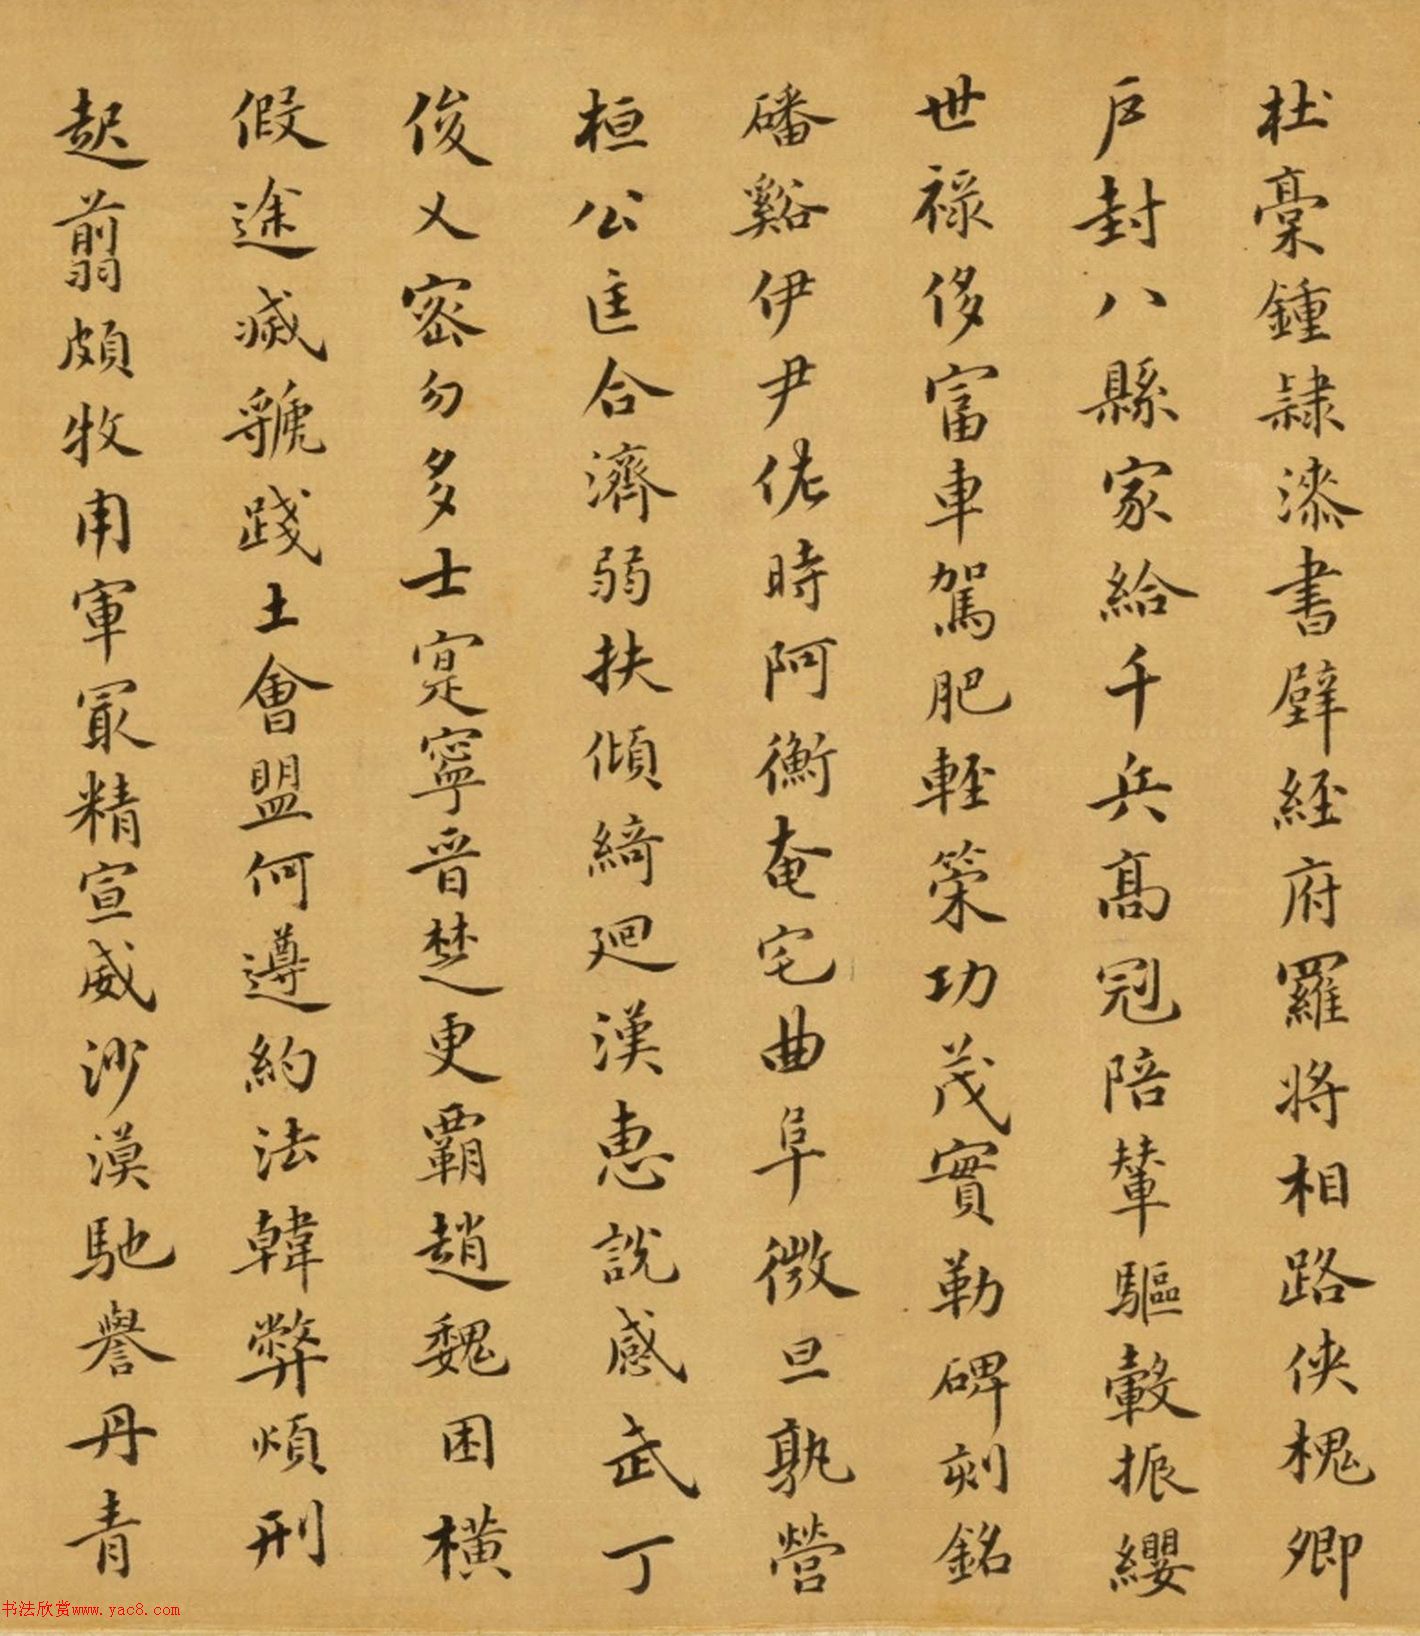 杜稾鍾隸漆書壁經府羅將相路俠槐卿
戶封八縣家給千兵高冠陪輦驅轂振纓
世祿侈富車駕肥輕策功茂實勒碑刻銘
磻谿伊尹佐時阿衡奄宅曲阜微旦孰營
桓公匡合濟弱扶傾綺迴漢惠說感武丁
俊乂密勿多士寔寧晉楚更覇趙魏困橫
假途滅虢踐土會盟何遵約法韓弊煩刑
起翦頗牧用軍冣精宣威沙漠馳譽丹青
书法欣赏www.yac8.com